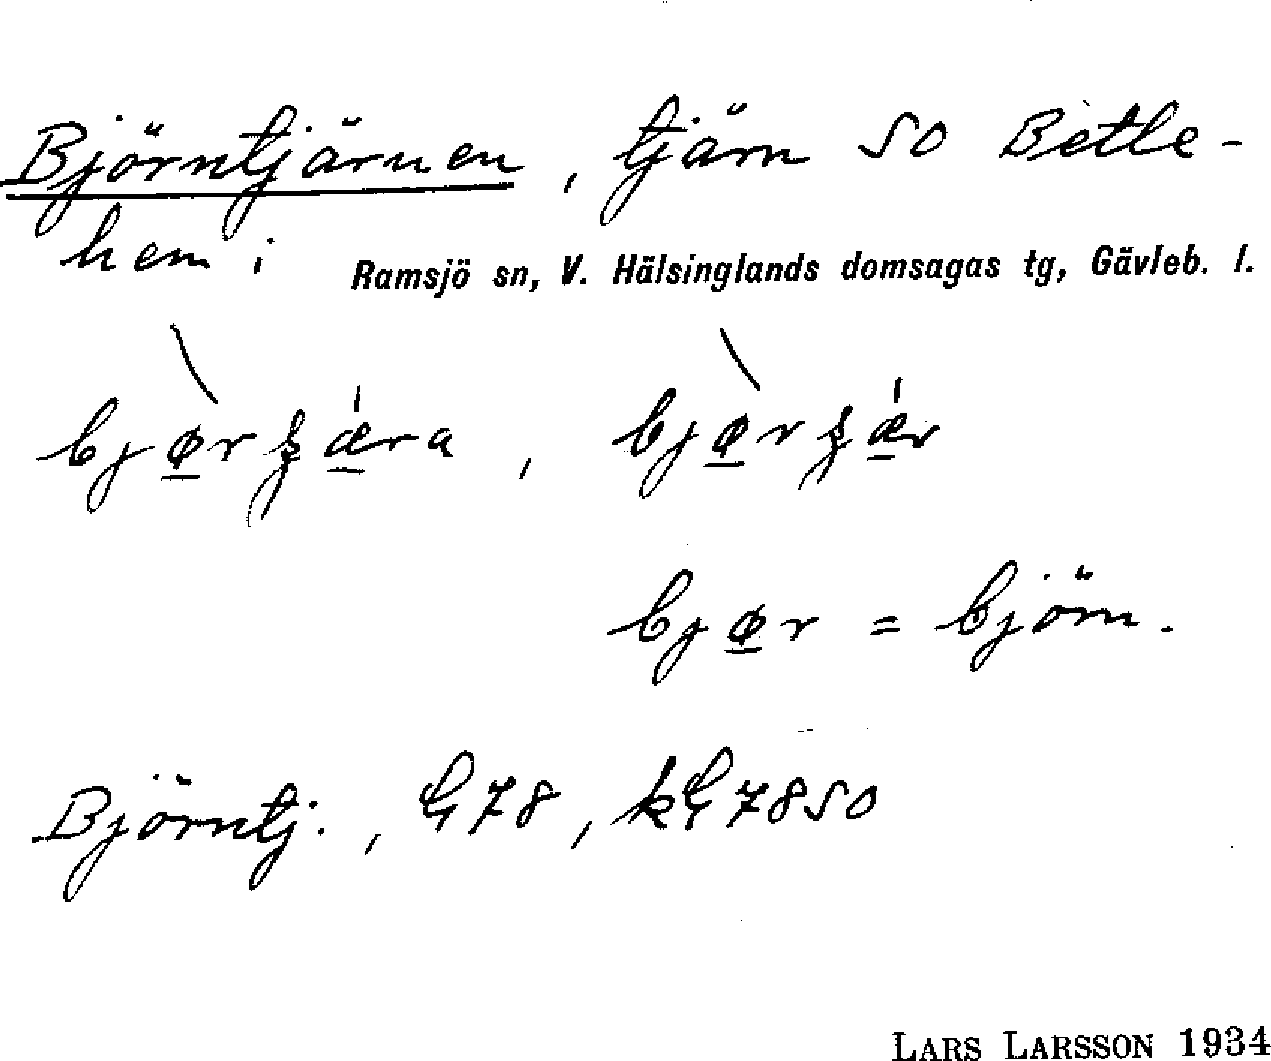 Björntjärnen, tjärn SO Betle-
hem i Ramsjö sn, V. Hälsinglands domsagas tg, Gävleb. l.
bjø̲r = björn.
Björntj., G78, kG78SO
LARS LARSSON 1934